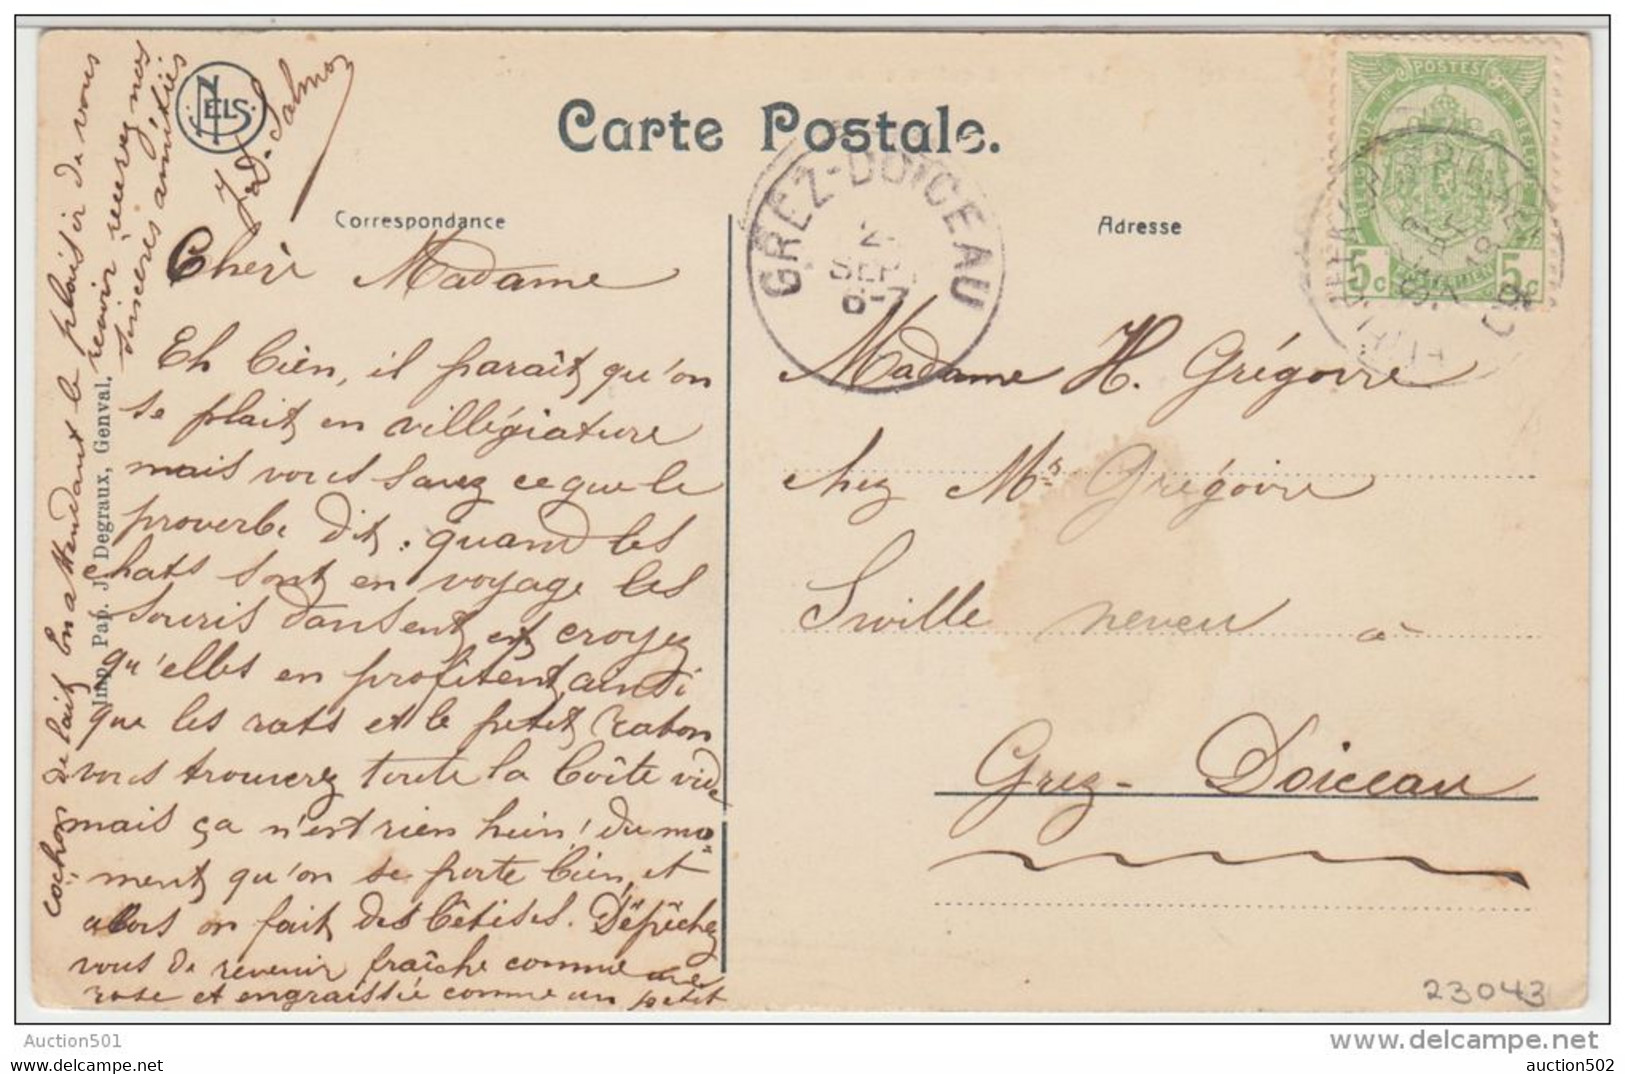 Carte Postale.
Correspondance
Adresse
NELS
GREZ-DOICEAU
2
SEPT
6-7
POSTES
BELGIQUE
BELGIË
5c
5c
Chère Madame
Eh bien, il paraît qu'on
se plait en villégiature
mais vous savez ce que le
proverbe dit : quand les
chats sont en voyage les
souris dansent et croyez
qu'elles en profitent, ainsi
que les rats et le petit raton
vous trouverez toute la boîte vide
mais ça n'est rien hein! du mo-
ment qu'on se porte bien, et
alors on fait des bêtises. Dépêchez
vous de revenir fraîche comme une
rose et engraissée comme un petit
cochon de lait. En attendant le plaisir de vous
revoir recevez nos
sincères amitiés
J. Salmon
Imp. Pap. J. Degraux, Genval.
Madame H. Grégoire
chez Mr Grégoire
Sville neveu à
Grez-Doiceau
23043
Auction501
delcampe.net
auction502